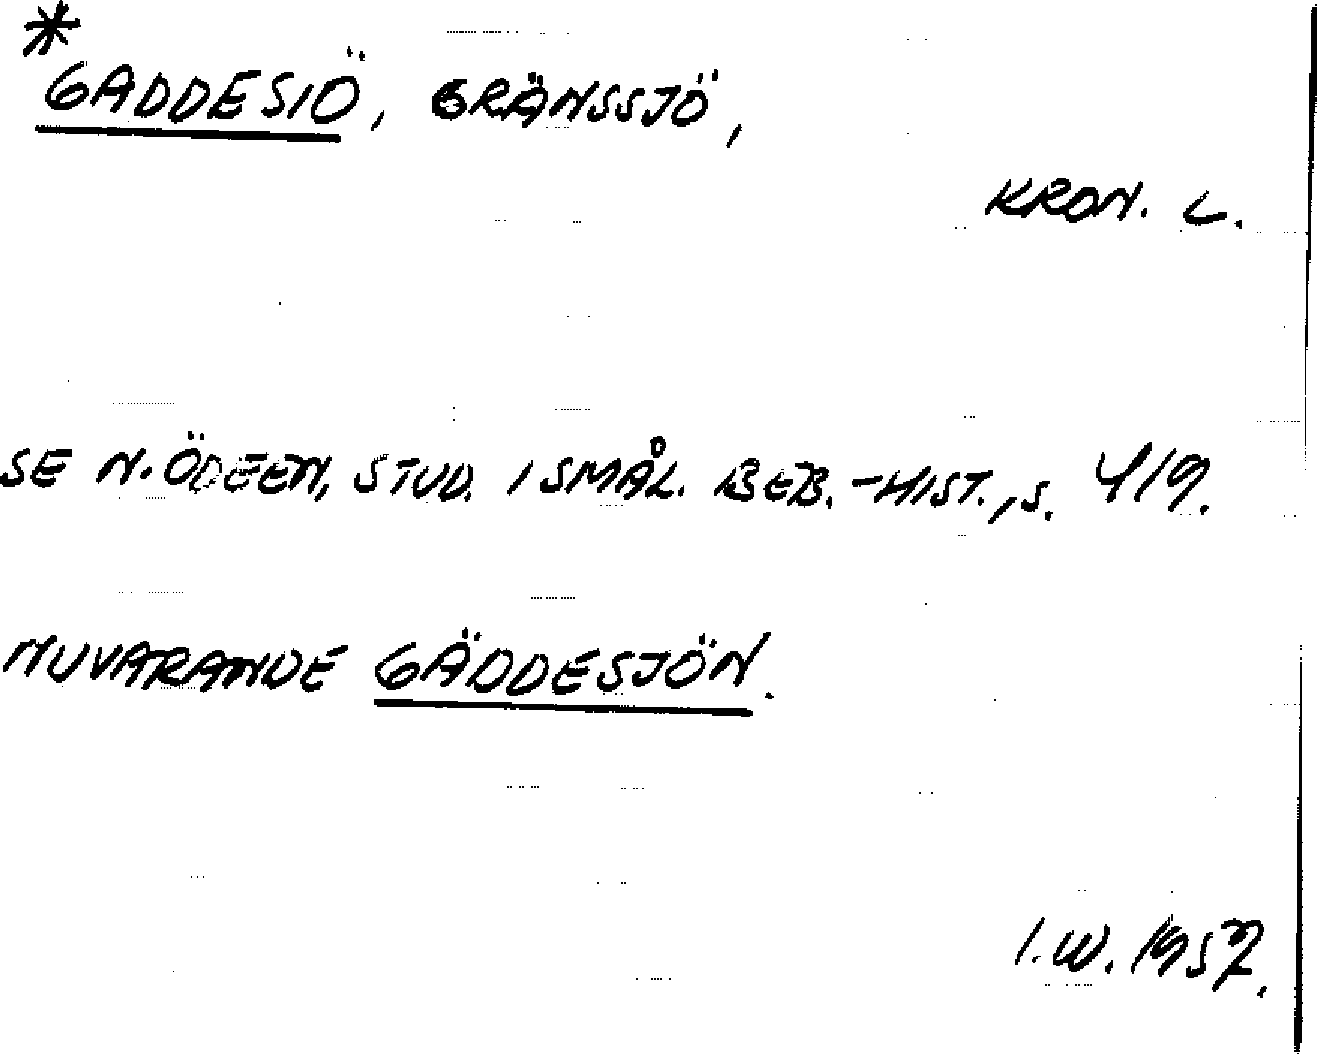 *
GADDESIÖ, GRÄNSSJÖ,
KRON. L.
SE N. ÖDEEN, STUD. I SMÅL. BEB.-HIST., S. 419.
NUVARANDE GÄDDESJÖN.
I.W. 1957.